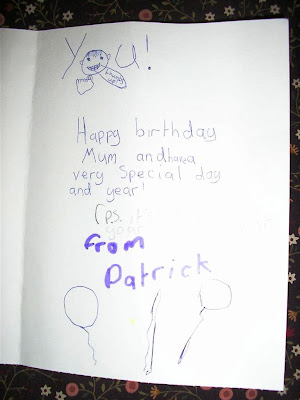 You!
Happy birthday
Mum and have a
very Special day
and year!
(P.S. it's
your
from
Patrick